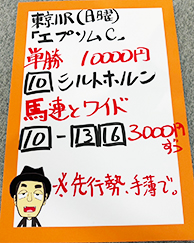 東京11R(日曜)
「エプソムC」
単勝 10000円
10 シルトホルン
馬連とワイド
10-13 16 3000円
ずつ
※先行勢、手薄で。